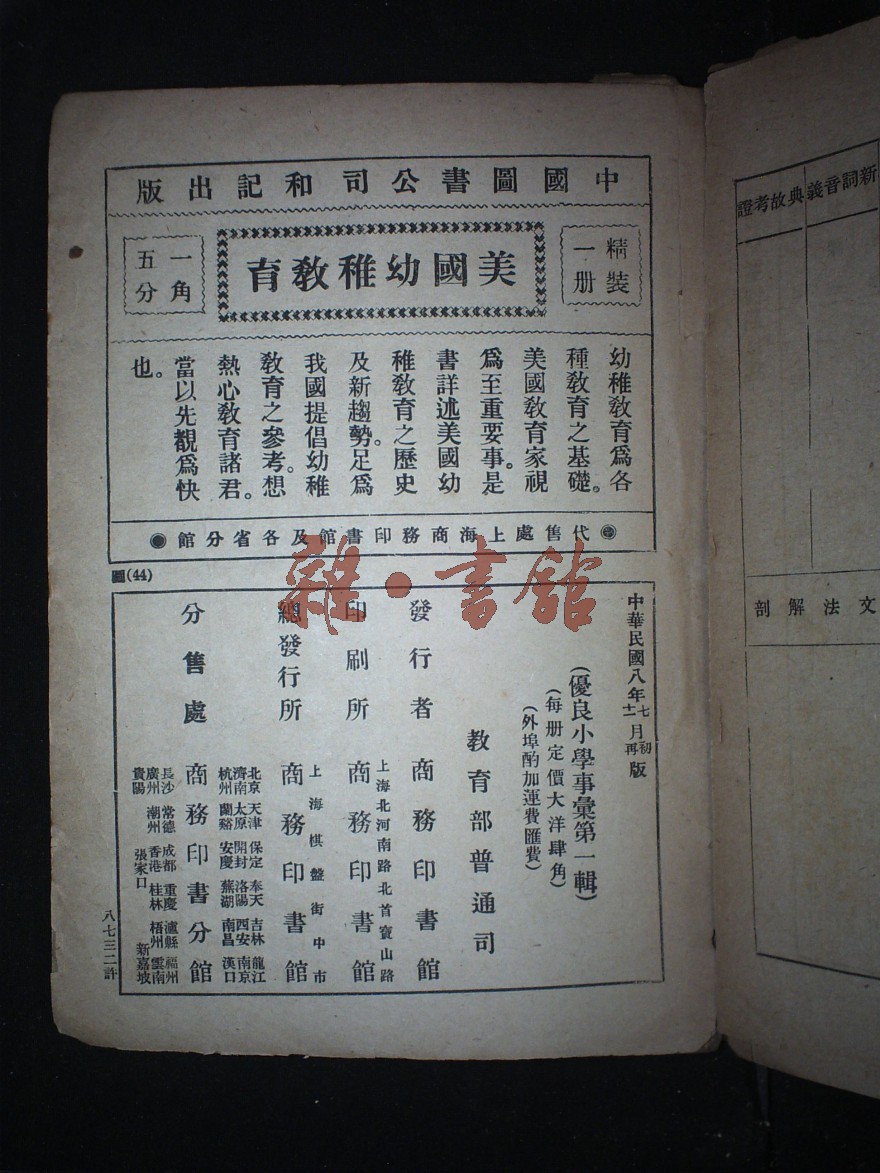 中國圖書公司和記出版
精裝
一册
美國幼稚教育
一角
五分
幼稚教育爲各
種教育之基礎。
美國教育家視
爲至重要事。是
書詳述美國幼
稚教育之歷史
及新趨勢。足爲
我國提倡幼稚
教育之參考。想
熱心教育諸君。
當以先覩爲快
也。
代售處上海商務印書館及各省分館
圖(44)
雜·書館
中華民國八年七月初版
十二 再
(優良小學事彙第一輯)
(每册定價大洋肆角)
(外埠酌加運費匯費)
教育部普通司
發行者 商務印書館
上海北河南路北首寶山路
印刷所 商務印書館
上海棋盤街中市
總發行所 商務印書館
北京 天津 保定 奉天 吉林 龍江
濟南 太原 開封 洛陽 西安 南京
杭州 蘭谿 安慶 蕪湖 南昌 漢口
分售處 商務印書分館
長沙 常德 成都 重慶 瀘縣 福州
廣州 潮州 香港 桂林 梧州 雲南
貴陽 張家口 新嘉坡
八七三二許
新詞音義
典故考證
文法解剖